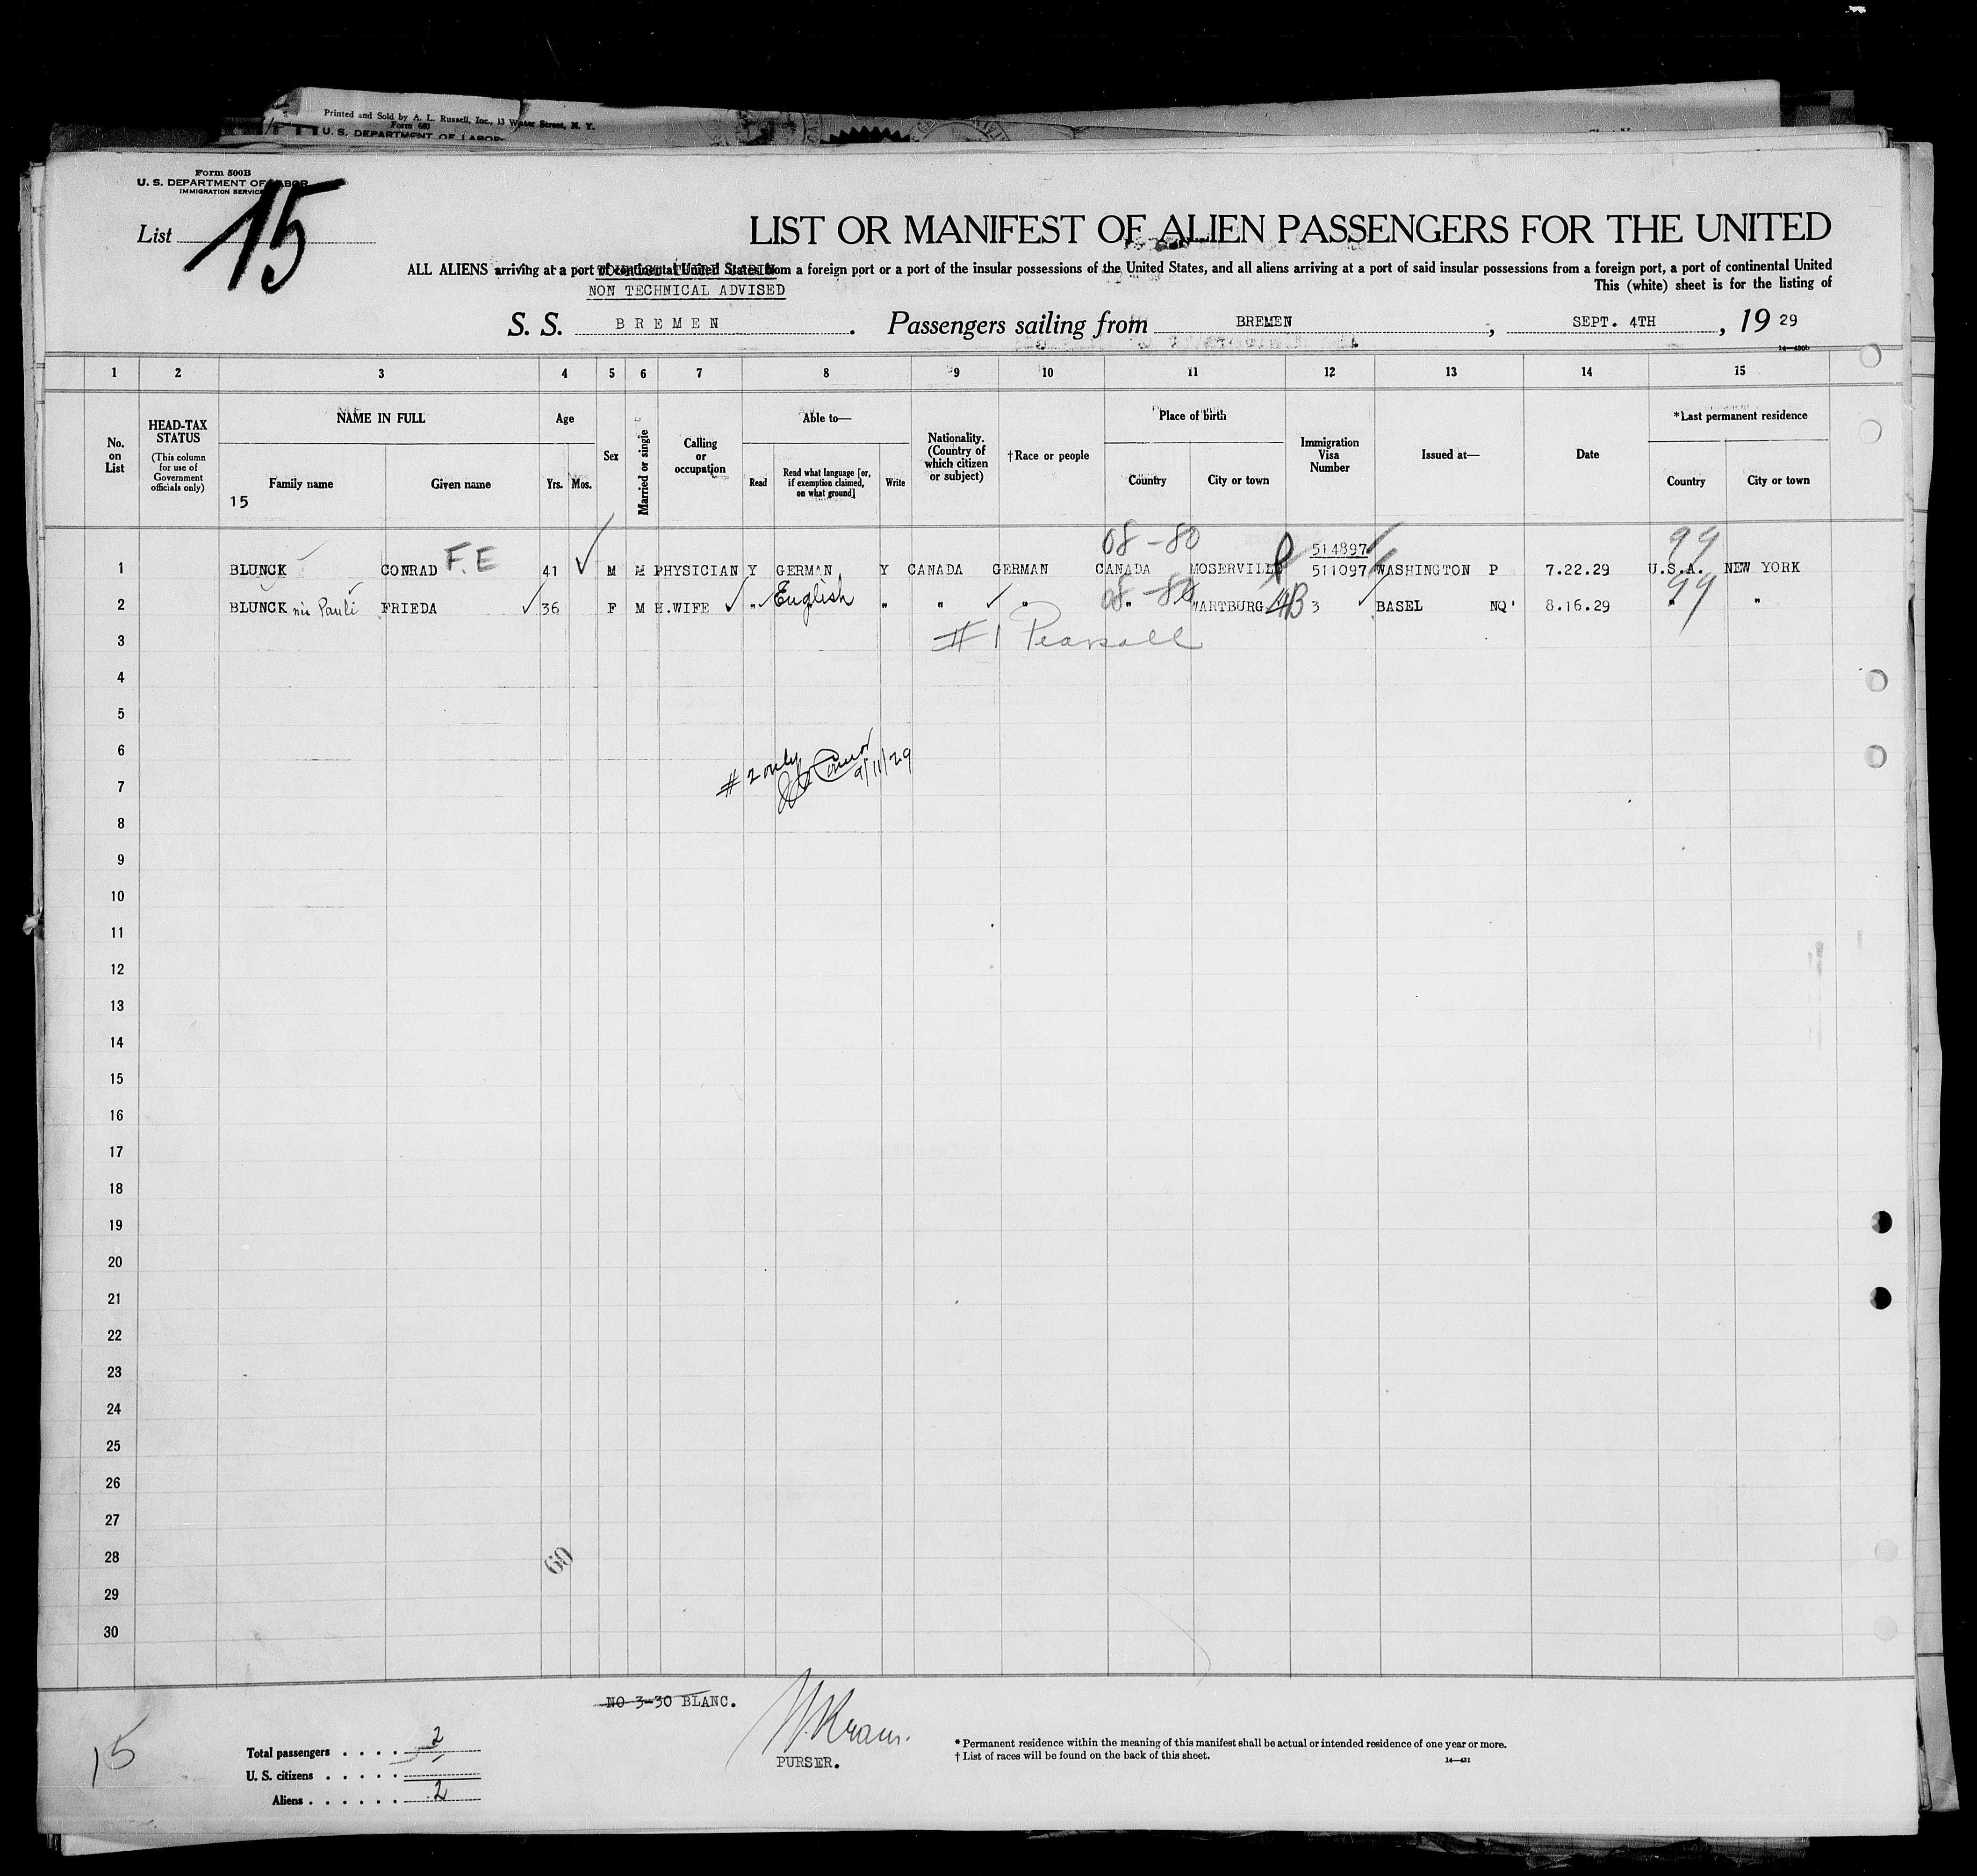 Printed and Sold by A. L. Russell, Inc., 13 Water Street, N. Y.
Form 680
U. S. DEPARTMENT OF LABOR
Form 500B
U. S. DEPARTMENT OF LABOR
IMMIGRATION SERVICE
List 15
LIST OR MANIFEST OF ALIEN PASSENGERS FOR THE UNITED
ALL ALIENS arriving at a port of continental United States from a foreign port or a port of the insular possessions of the United States, and all aliens arriving at a port of said insular possessions from a foreign port, a port of continental United
NON TECHNICAL ADVISED
This (white) sheet is for the listing of
S. S. BREMEN. Passengers sailing from BREMEN, SEPT. 4TH, 19 29
14—430b
1 2 3 4 5 6 7 8 9 10 11 12 13 14 15
No. on List
HEAD-TAX STATUS
(This column for use of Government officials only)
NAME IN FULL
Family name
Given name
15
Age
Yrs. Mos.
Sex
Married or single
Calling or occupation
Able to—
Read
Read what language [or, if exemption claimed, on what ground]
Write
Nationality. (Country of which citizen or subject)
†Race or people
Place of birth
Country
City or town
Immigration Visa Number
Issued at—
Date
*Last permanent residence
Country
City or town
08-80 514897 99
1 BLUNCK CONRAD F.E 41 M M PHYSICIAN Y GERMAN Y CANADA GERMAN CANADA MOSERVILLE 511097 WASHINGTON P 7.22.29 U.S.A. NEW YORK
08-80 99
2 BLUNCK Pauli FRIEDA 36 F M H.WIFE " English " " " " WARTBURG 3 BASEL NQ 8.16.29 " "
3 #1 Pearsall
4
5
6
7 #2 only 9/11/29
8
9
10
11
12
13
14
15
16
17
18
19
20
21
22
23
24
25
26
27
28 60
29
30
NO 3-30 BLANC.
W. Kraus.
PURSER.
15
Total passengers . . . . 2
U. S. citizens . . . . .
Aliens . . . . . . 2
* Permanent residence within the meaning of this manifest shall be actual or intended residence of one year or more.
† List of races will be found on the back of this sheet.
14—431